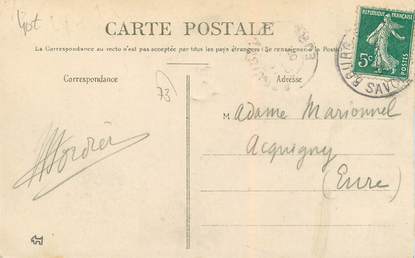 CARTE POSTALE
La Correspondance au recto n'est pas acceptée par tous les pays étrangers (Se renseigner à la Poste)
Correspondance
Adresse
73
RÉPUBLIQUE FRANÇAISE
5c
POSTES
BOURG
SAVOIE
Madame Marionnel
Acquigny
(Eure)